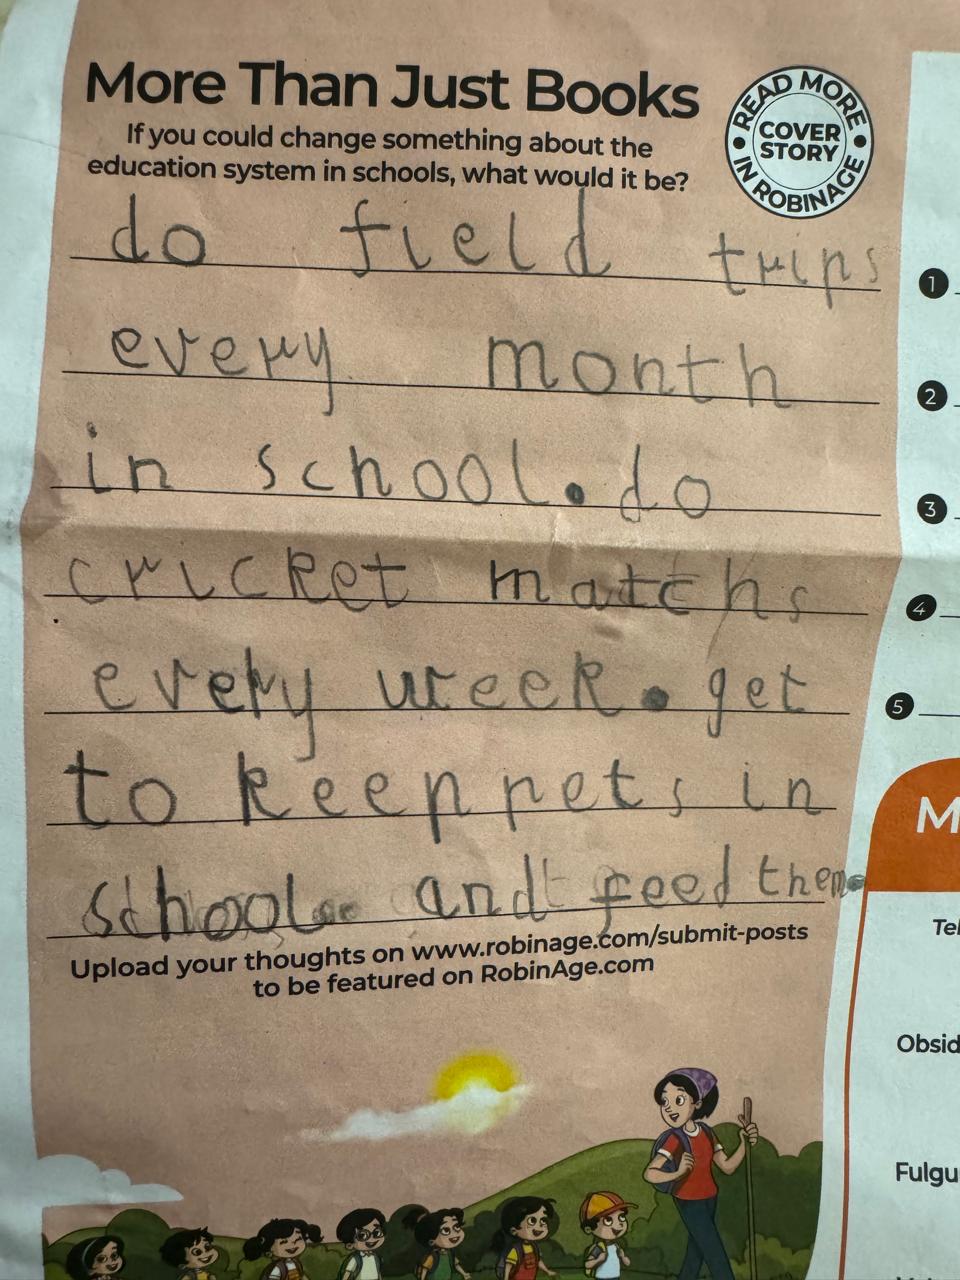 More Than Just Books
If you could change something about the
education system in schools, what would it be?
READ MORE
COVER
STORY
IN ROBINAGE
do field trips
every month
in school. do
cricket matchs
every week. get
to keep pets in
school and feed them.
Upload your thoughts on www.robinage.com/submit-posts
to be featured on RobinAge.com
1
2
3
4
5
M
Tel
Obsid
Fulgu